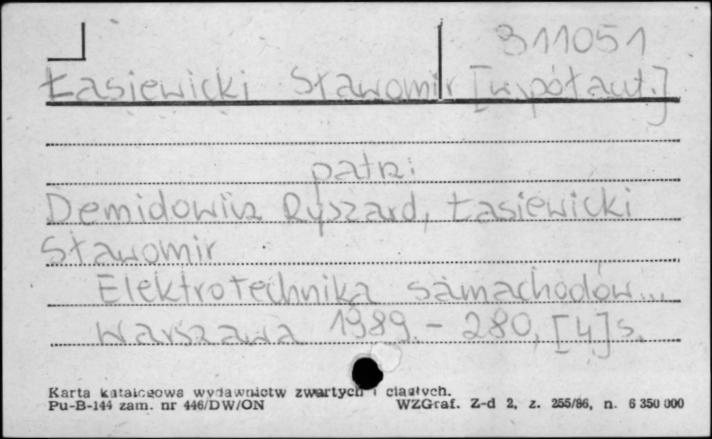 311051
Łasiewicki Sławomir [współaut.]
patrz:
Demidowicz Ryszard, Łasiewicki
Sławomir
Elektrotechnika samachodów...
Warszawa 1989. - 280, [4] s.
Karta katalogowa wydawnictw zwartych i ciągłych.
Pu-B-144 zam. nr 446/DW/ON WZGraf. Z-d 2, z. 255/86, n. 6 350 000